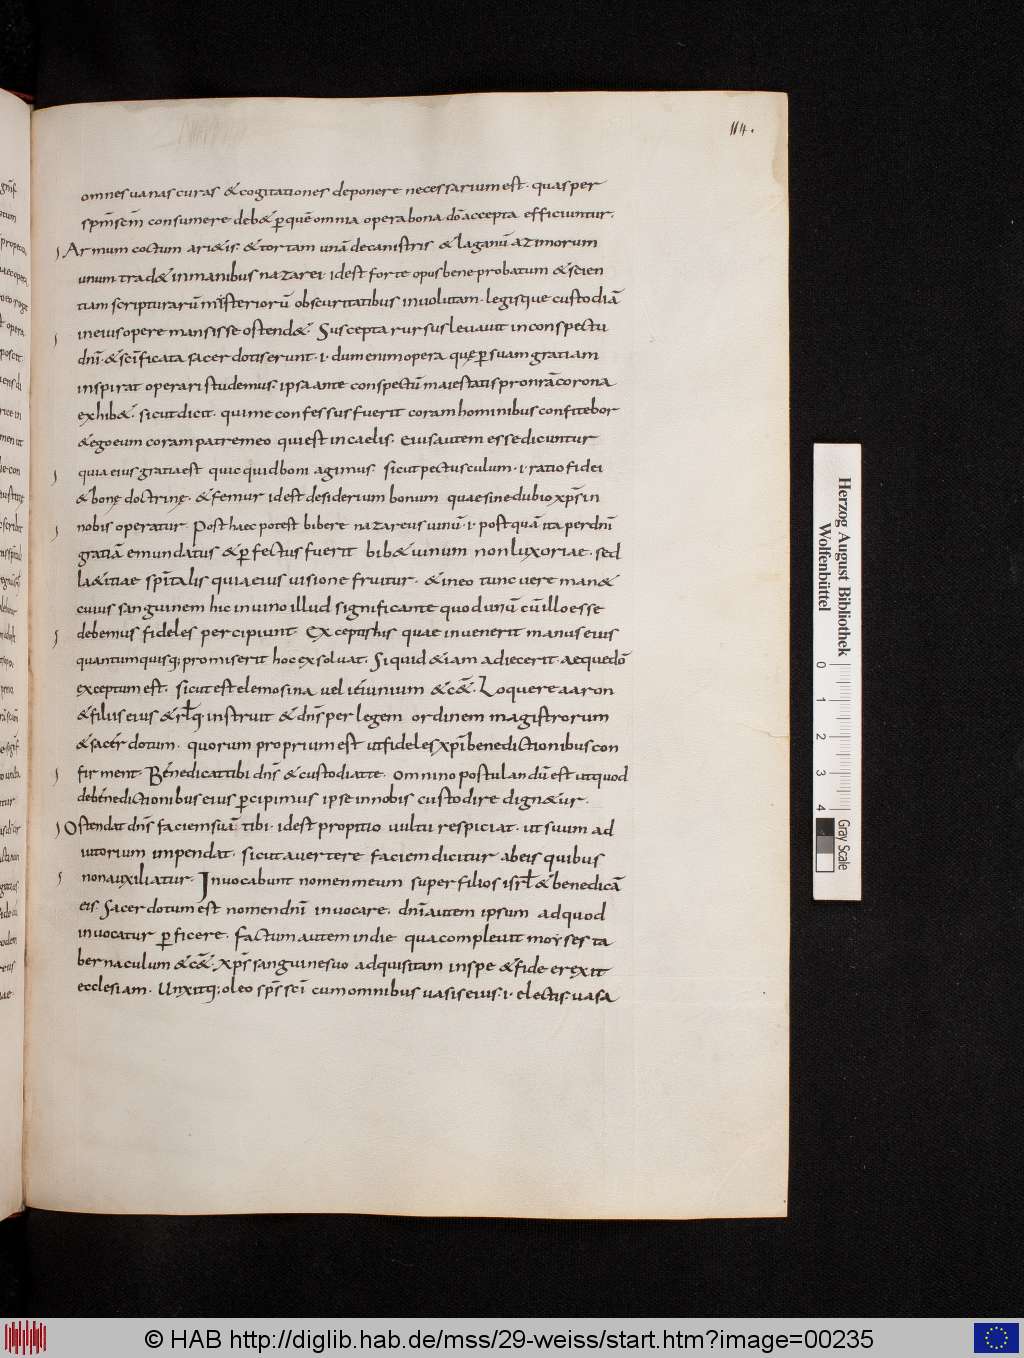 114.
omnes uanas curas & cogitationes deponere necessarium est · quas per
spm̄ scm̄ consumere deb& ꝑ quē omnia opera bona dō accepta efficiuntur.
Armum coctum ari&is · & tortam unā de canistris & laganū azimorum
unum trad& in manibus nazarei · id est forte opus bene probatum & scien
tiam scripturarū misteriorū obscuritatibus inuolutam · legisque custodiā
in eius opere mansisse ostend&. Suscepta rursus leuauit in conspectu
dn̄i · & scīficata sacerdotis erunt · i · dum enim opera quę ꝑ suam gratiam
inspirat operari studemus · ipsa ante conspectū maiestatis pro nr̄a corona
exhib& · sicut dicit · qui me confessus fuerit coram hominibus confitebor
& ego eum coram patre meo qui est in caelis · Eius autem esse dicuntur
quia eius gratia est quicquid boni agimus · sicut pectusculum · i · ratio fidei
& bonę doctrinę · & femur id est desiderium bonum quae sine dubio xps̄ in
nobis operatur · Post haec potest bibere nazareus uinū · i · postquā ita per dn̄i
gratiā emundatus & ꝑfectus fuerit bib& uinum non luxoriae · sed
la&itiae spīritalis quia eius uisione fruitur · & in eo tunc uere man&
cuius sanguinem hic in uino illud significante quod unū cū illo esse
debemus fideles percipiunt Exceptis his quae inuenerit manus eius
quantum quisq; promiserit hoc exsoluat · Si quid &iam adiecerit · aeque dō
exceptum est · sicut est elemosina uel ieiunium & c&̄ · Loquere aaron
& filiis eius & rl̄q instruit & dn̄s per legem ordinem magistrorum
& sacerdotum · quorum proprium est ut fideles xpī benedictionibus con
firment · Benedicat tibi dn̄s & custodiat te · omnino postulandū est ut quod
de benedictionibus eius ꝑcipimus ipse in nobis custodire dign&ur ·
Ostendat dn̄s faciem suā tibi · id est propitio uultu respiciat · ut suum ad
iutorium impendat · sicut auertere faciem dicitur ab eis quibus
non auxiliatur · Inuocabunt nomen meum super filios isrl̄ & benedicā
eis · Sacerdotum est nomen dn̄i inuocare · dn̄i autem ipsum ad quod
inuocatur ꝑficere · Factum autem in die qua compleuit moyses ta
bernaculum & c&̄ · Xps̄ sanguine suo adquisitam in spe & fide erexit
ecclesiam · Unxitq; oleo sps̄ scī cum omnibus uasis eius · i · electis · uasa
Herzog August Bibliothek
Wolfenbüttel
0 1 2 3 4
Gray Scale
© HAB http://diglib.hab.de/mss/29-weiss/start.htm?image=00235